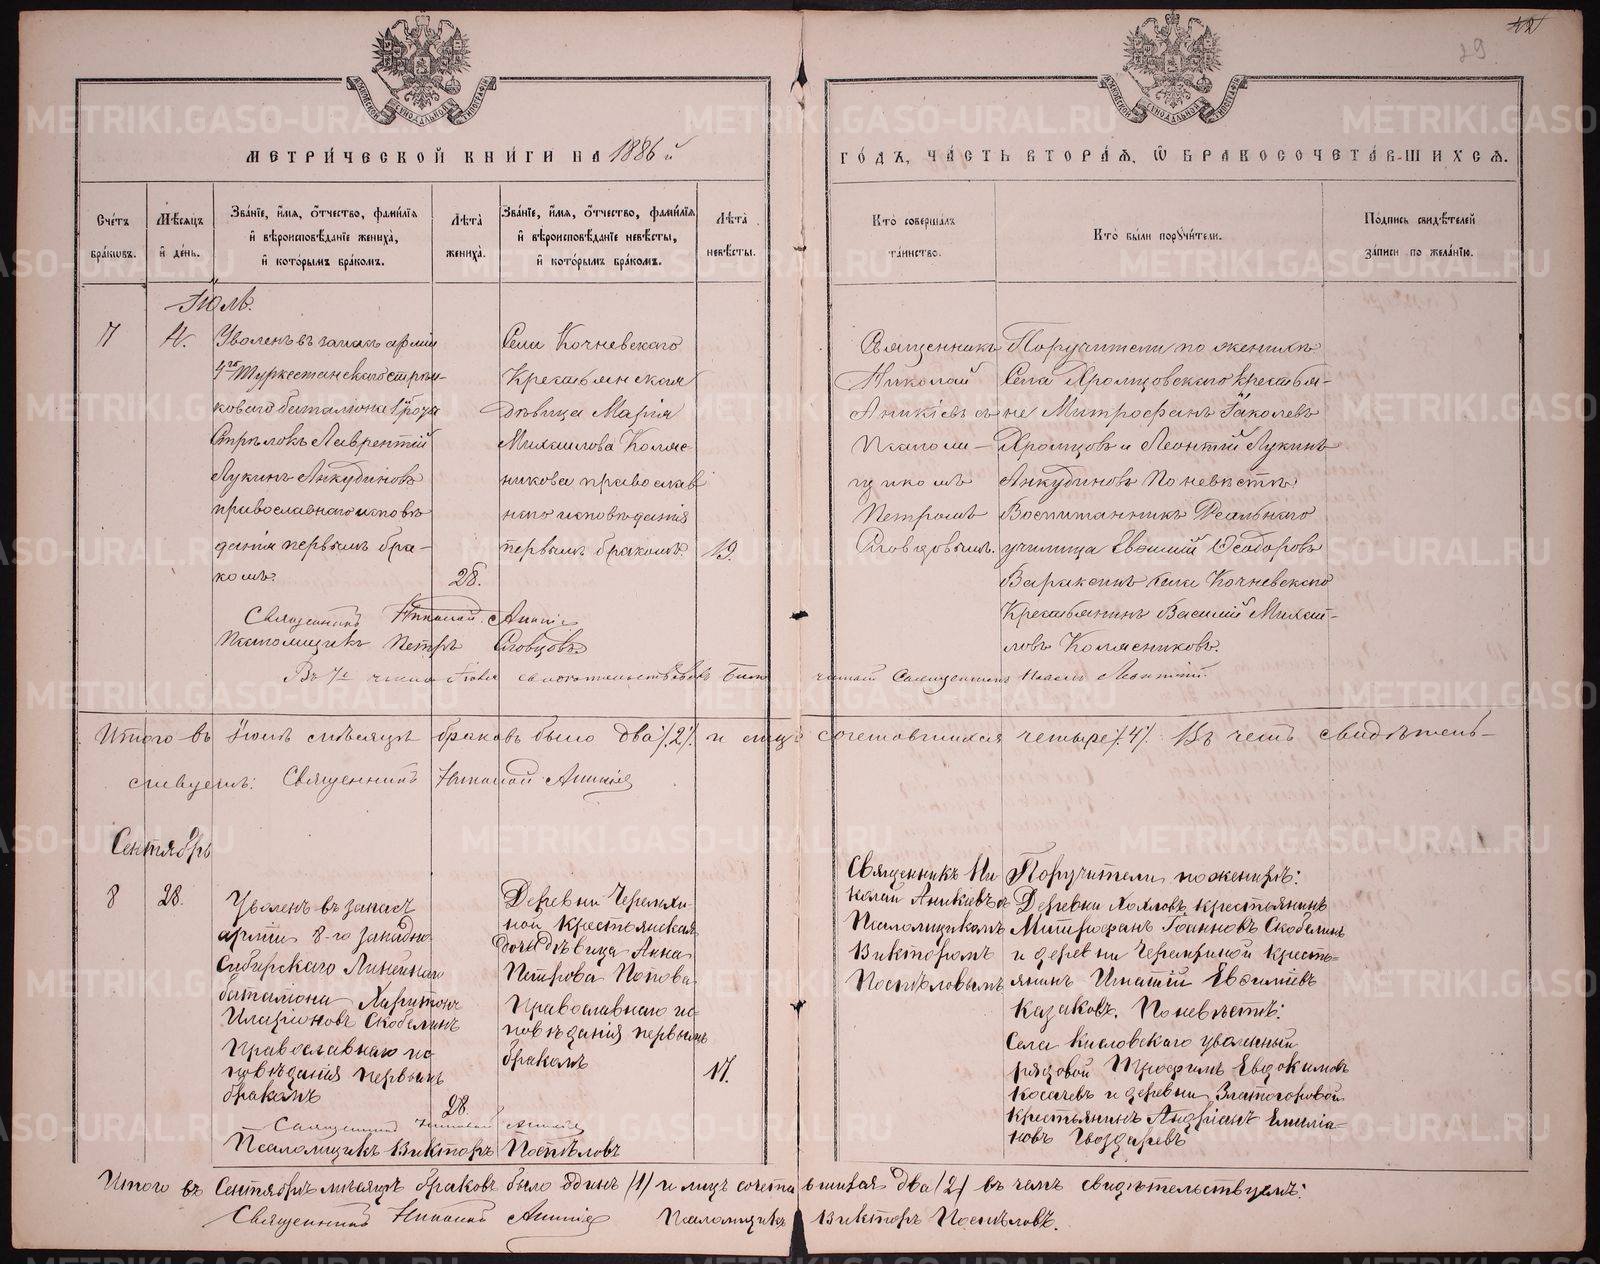 42
29
МЕТРИЧЕСКОЙ КНИГИ НА 1886 й
ГОДЪ, ЧАСТЬ ВТОРАЯ, Ѡ БРАКОСОЧЕТАВШИХСЯ.
Счетъ браковъ.
Мѣсяцъ и день.
Званіе, имя, отчество, фамилія и вѣроисповѣданіе жениха, и которымъ бракомъ.
Лѣта жениха.
Званіе, имя, отчество, фамилія и вѣроисповѣданіе невѣсты, и которымъ бракомъ.
Лѣта невѣсты.
Кто совершалъ таинство.
Кто были поручители.
Подпись свидѣтелей записи по желанію.
Іюль.
7
4.
Уволенъ въ запасъ арміи
Туркестанскаго стрѣл-
коваго баталіона роты
Стрѣлокъ Лаврентій
Лукинъ Анкудиновъ
православнаго исповѣ
данія первымъ бра-
комъ.
28.
Села Кочневскаго
Крестьянская
дѣвица Марія
Михаилова Коляс-
никова православ
наго исповѣданія
первымъ бракомъ.
19.
Священникъ
Николай
Аникіевъ съ
Псаломщ-
икомъ
Петромъ
Словцовымъ.
Поручители по женихѣ
Села Хромцовскаго крестья-
не Митрофанъ Іаковлев
Хромцовъ и Леонтій Лукинъ
Анкудиновъ По невѣстѣ
Воспитанникъ Реальнаго
училища Евѳимій Ѳеодоровъ
Варакинъ села Кочневскаго
Крестьянинъ Василій Михаи-
ловъ Колясниковъ.
Священникъ Николай Аникіев
Псаломщикъ Петръ Словцовъ
Итого въ Іюлѣ мѣсяцѣ браковъ было два /2/. и лицъ сочетавшихся четыре /4/. Въ чемъ свидѣтель-
ствуемъ: Священникъ Николай Аникіев
Сентябрь
8
28.
Уволенъ въ запасъ
арміи 8-го Западно
Сибирскаго Линейнаго
баталіона Харитонъ
Иларіоновъ Скобелинъ
Православнаго ис
повѣданія первымъ
бракомъ
28.
Деревни Черемхи-
ной крестьянская
дочь дѣвица Анна
Петрова Попова
Православнаго ис-
повѣданія первымъ
бракомъ
17.
Священникъ Ни
колай Аникіевъ съ
Псаломщикомъ
Викторомъ
Поспѣловымъ
Поручители по женихѣ:
Деревни Хохловъ крестьянинъ
Митрофанъ Іоанновъ Скобелинъ
и деревни Черемхиной кресть-
янинъ Игнатій Евѳиміевъ
Казаковъ. По невѣстѣ:
Села Кисловскаго уволенный
рядовой Трофимъ Евдокимовъ
Косачевъ и деревни Златогоровой
крестьянинъ Андріанъ Емиліа-
новъ Гвоздаревъ
Священникъ Николай Аникіев
Псаломщикъ Викторъ Поспѣловъ
Итого въ Сентябрѣ мѣсяцѣ браковъ было одинъ /1/ и лицъ сочетавшихся два /2/ въ чемъ свидѣтельствуемъ:
Священникъ Николай Аникіев Псаломщикъ Викторъ Поспѣловъ.
METRIKI.GASO-URAL.RU